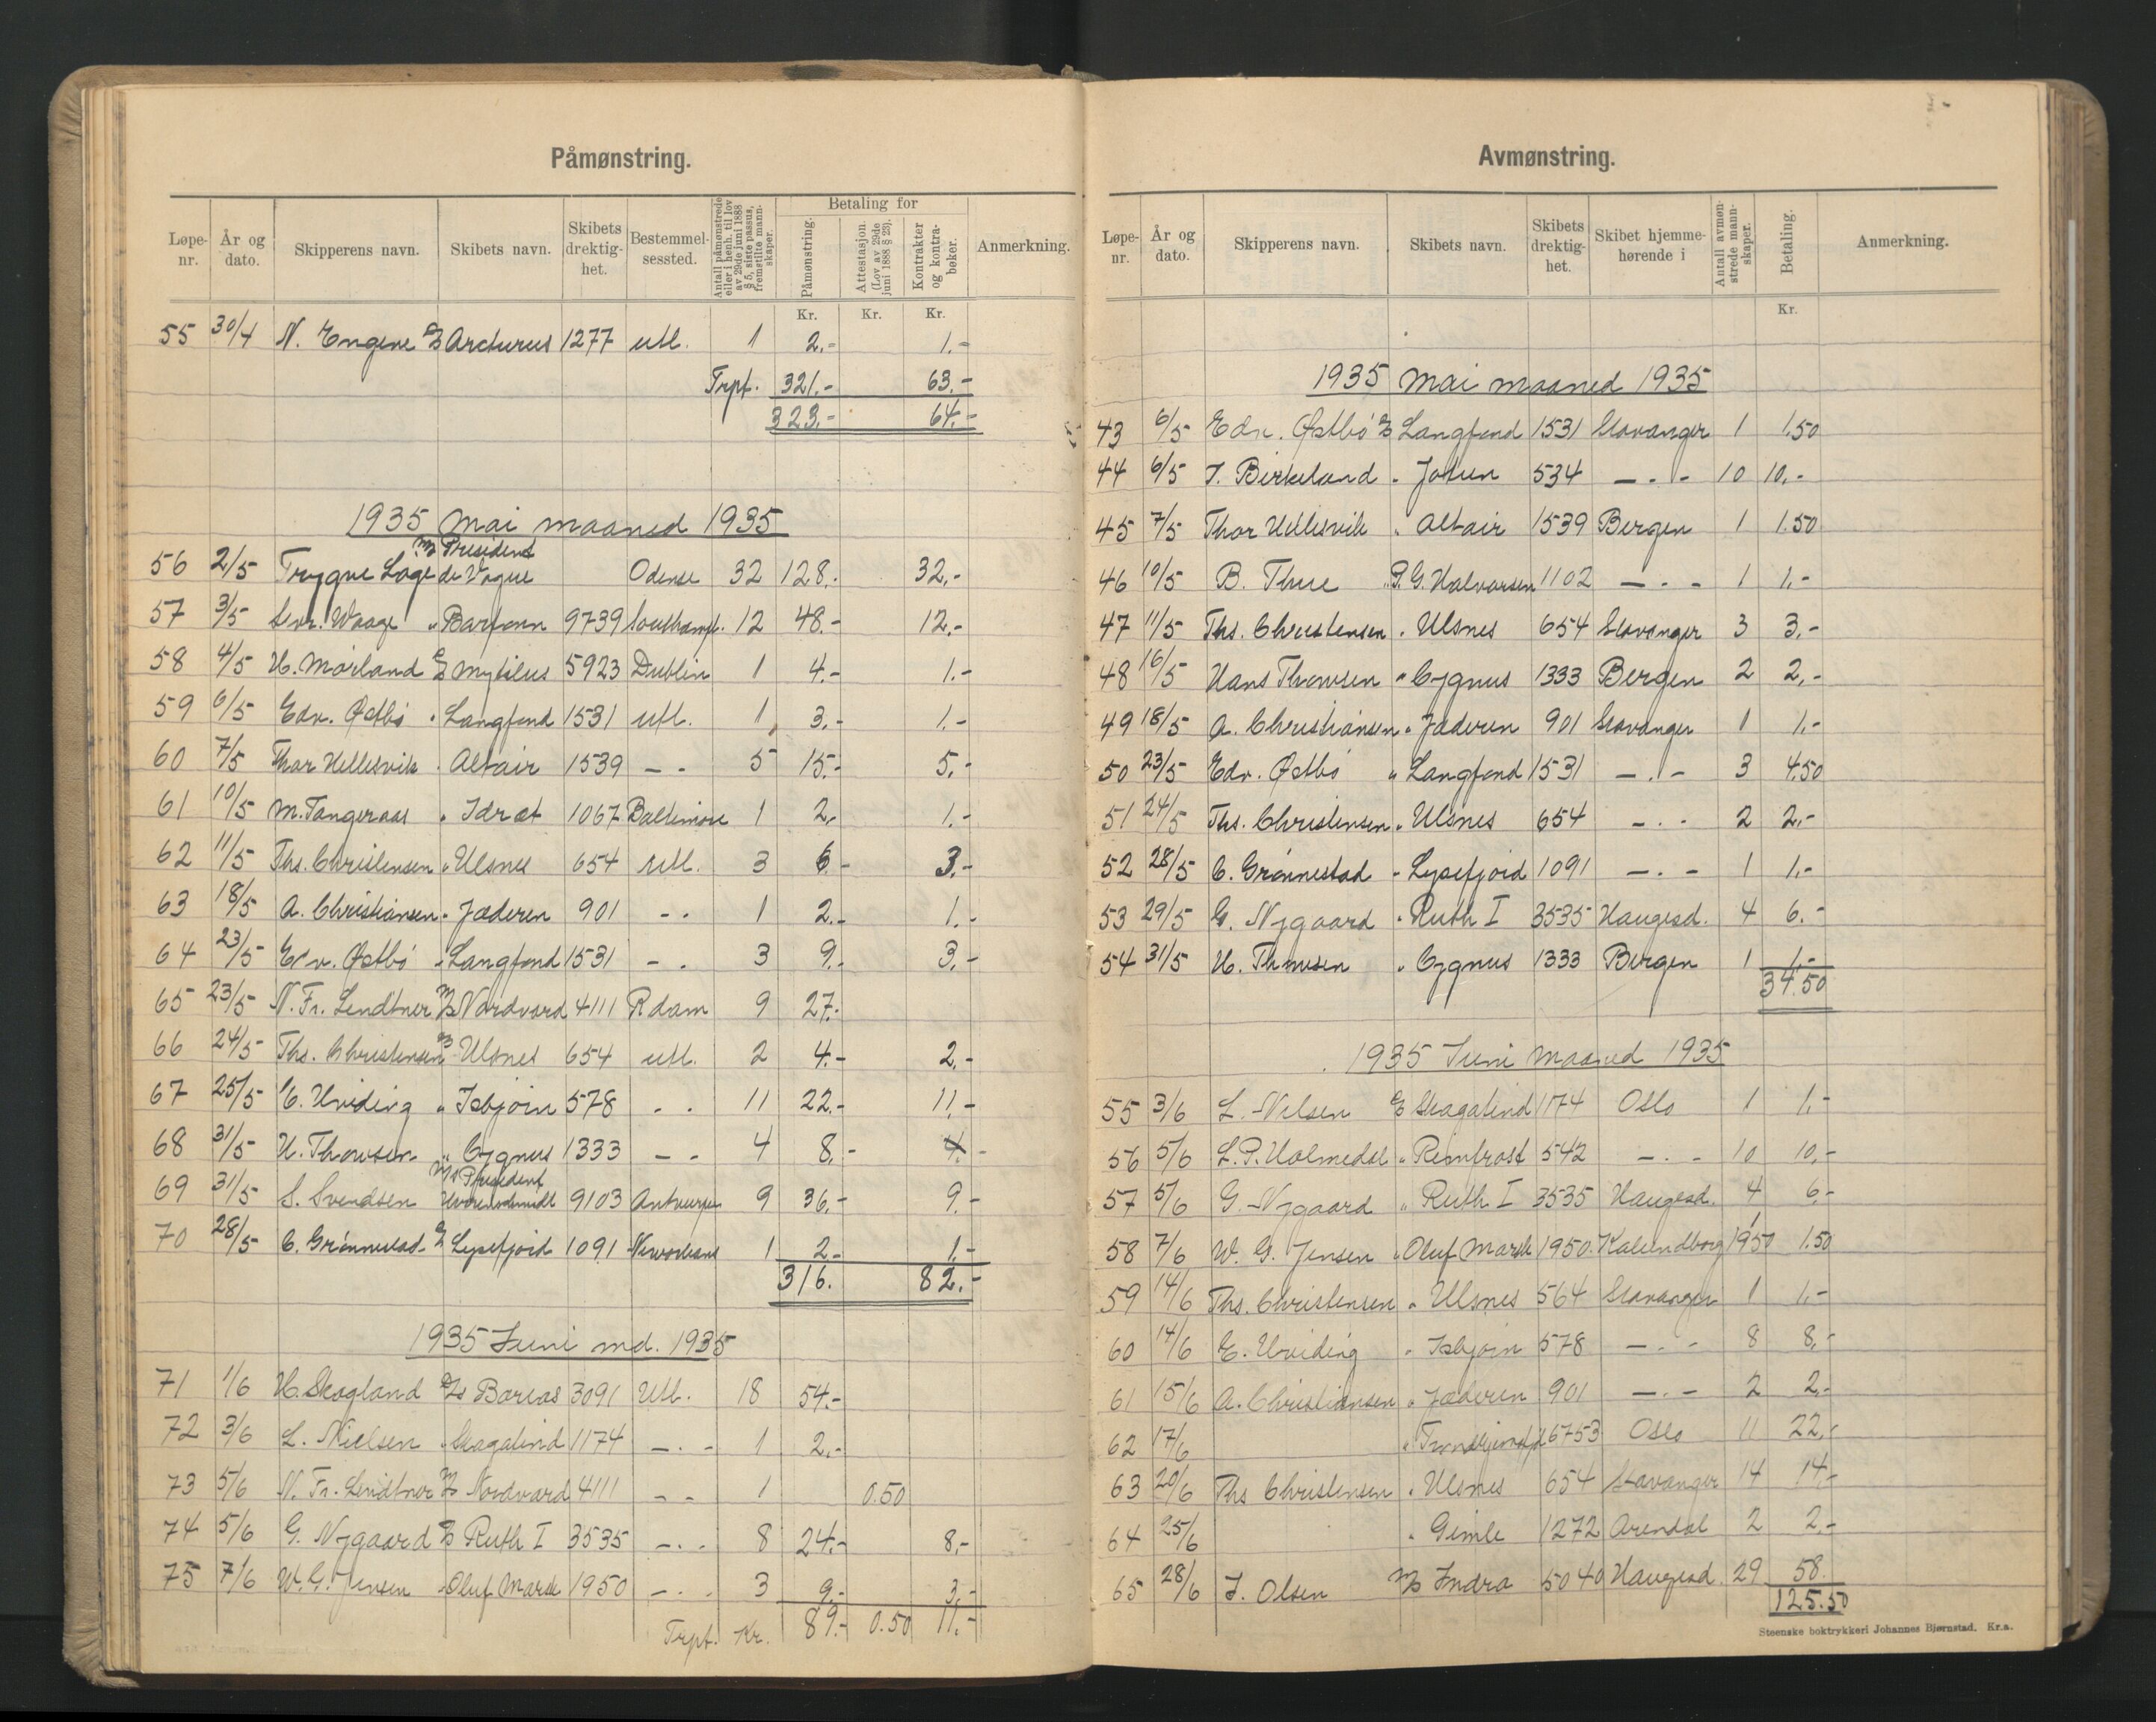 Påmønstring.
Løpe-nr. År og dato. Skipperens navn. Skibets navn. Skibets drektig-het. Bestemmel-sessted. Antall påmønstrede eller i henh. til lov av 29de juni 1888 § 5, siste passus, fremstilte mann-skaper. Betaling for Påmønstring. Attestasjon. (Lov av 29de juni 1888 § 23). Kontrakter og kontra-bøker. Anmerkning.
Kr. Kr. Kr.
55 30/4 N. Engene Arcturus 1277 utl. 1 2.- 1.-
Trpt. 321.- 63.-
323.- 64.-
1935 Mai maaned 1935
M/s President
56 2/5 Trygve Lage de Vogue Odense 32 128.- 32.-
57 3/5 Waage " 9739 Southampt. 12 48.- 12.-
58 4/5 H. Mørland Mytilus 5923 Dublin 1 4.- 1.-
59 6/5 Edv. Østbö " Langfond 1531 utl. 1 3.- 1.-
60 7/5 Thor Hellesvik " Altair 1539 - - 5 15.- 5.-
61 10/5 M. Tangeraas " Idræt 1067 Baltimore 1 2.- 1.-
62 11/5 Ths. Christensen " Ulsnes 654 utl. 3 6.- 3.-
63 18/5 A. Christiansen " Jæderen 901 - - 1 2.- 1.-
64 23/5 Edv. Østbö " Langfond 1531 - - 3 9.- 3.-
65 23/5 N. Fr. Lendtner M/s Nordvard 4111 Rdam 9 27.-
66 24/5 Ths. Christensen Ulsnes 654 utl. 2 4.- 2.-
67 25/5 E. Hviding " Isbjörn 578 - - 11 22.- 11.-
68 31/5 H. Thowsen " Cygnus 1333 - - 4 8.- 4.-
M/s President
69 31/5 S. Svendsen 9103 Antwerpen 9 36.- 9.-
70 28/5 C. Grönnestad Lysefjord 1091 1 2.- 1.-
316. 82.-
1935 Juni md. 1935
71 1/6 H. Skogland Boreas 3091 Utl. 18 54.-
72 3/6 L. Nielsen " Skagatind 1174 - - 1 2.-
73 5/6 N. Fr. Lendtner M/s Nordvard 4111 - - 1 0.50
74 5/6 G. Nygaard Ruth I 3535 - - 8 24.- 8.-
75 7/6 W. G. Jensen " Oluf Mærsk 1950 - - 3 9.- 3.-
Trpt. Kr. 89.- 0.50 11.-
Avmønstring.
Løpe-nr. År og dato. Skipperens navn. Skibets navn. Skibets drektig-het. Skibet hjemme-hørende i Antall avmøn-strede mann-skaper. Betaling. Anmerkning.
Kr.
1935 Mai maaned 1935
43 6/5 Edv. Østbö Langfond 1531 Stavanger 1 1.50
44 6/5 T. Birkeland " Jotun 534 - " - 10 10.-
45 7/5 Thor Hellesvik " Altair 1539 Bergen 1 1.50
46 10/5 B. Thue " P. G. Halvorsen 1102 - " - 1 1.-
47 11/5 Ths. Christensen " Ulsnes 654 Stavanger 3 3.-
48 16/5 Hans Thowsen " Cygnus 1333 Bergen 2 2.-
49 18/5 A. Christiansen " Jæderen 901 Stavanger 1 1.-
50 23/5 Edv. Østbö " Langfond 1531 - " - 3 4.50
51 24/5 Ths. Christensen " Ulsnes 654 - " - 2 2.-
52 28/5 C. Grönnestad " Lysefjord 1091 - " - 1 1.-
53 29/5 G. Nygaard " Ruth I 3535 Haugesd. 4 6.-
54 31/5 H. Thowsen " Cygnus 1333 Bergen 1 1.-
34.50
1935 Juni Maaned 1935
55 3/6 L. Nilsen Skagatind 1174 Oslo 1 1.-
56 5/6 L. P. Holmedal " Rimfrost 542 - " - 10 10.-
57 5/6 G. Nygaard " Ruth I 3535 Haugesd. 4 6.-
58 7/6 W. G. Jensen " Oluf Mærsk 1950 Kalundborg 1 1.50
59 14/6 Ths. Christensen " Ulsnes 564 Stavanger 1 1.-
60 14/6 E. Hviding " Isbjörn 578 - " - 8 8.-
61 15/6 A. Christiansen " Jæderen 901 - " - 2 2.-
62 17/6 " 6753 Oslo 11 22.-
63 20/6 Ths Christensen " Ulsnes 654 Stavanger 14 14.-
64 25/6 " Gimle 1272 Arendal 2 2.-
65 28/6 J. Olsen M/s Indra 5040 Haugesd. 29 58.
125.50
Steenske boktrykkeri Johannes Bjørnstad. Kr.a.